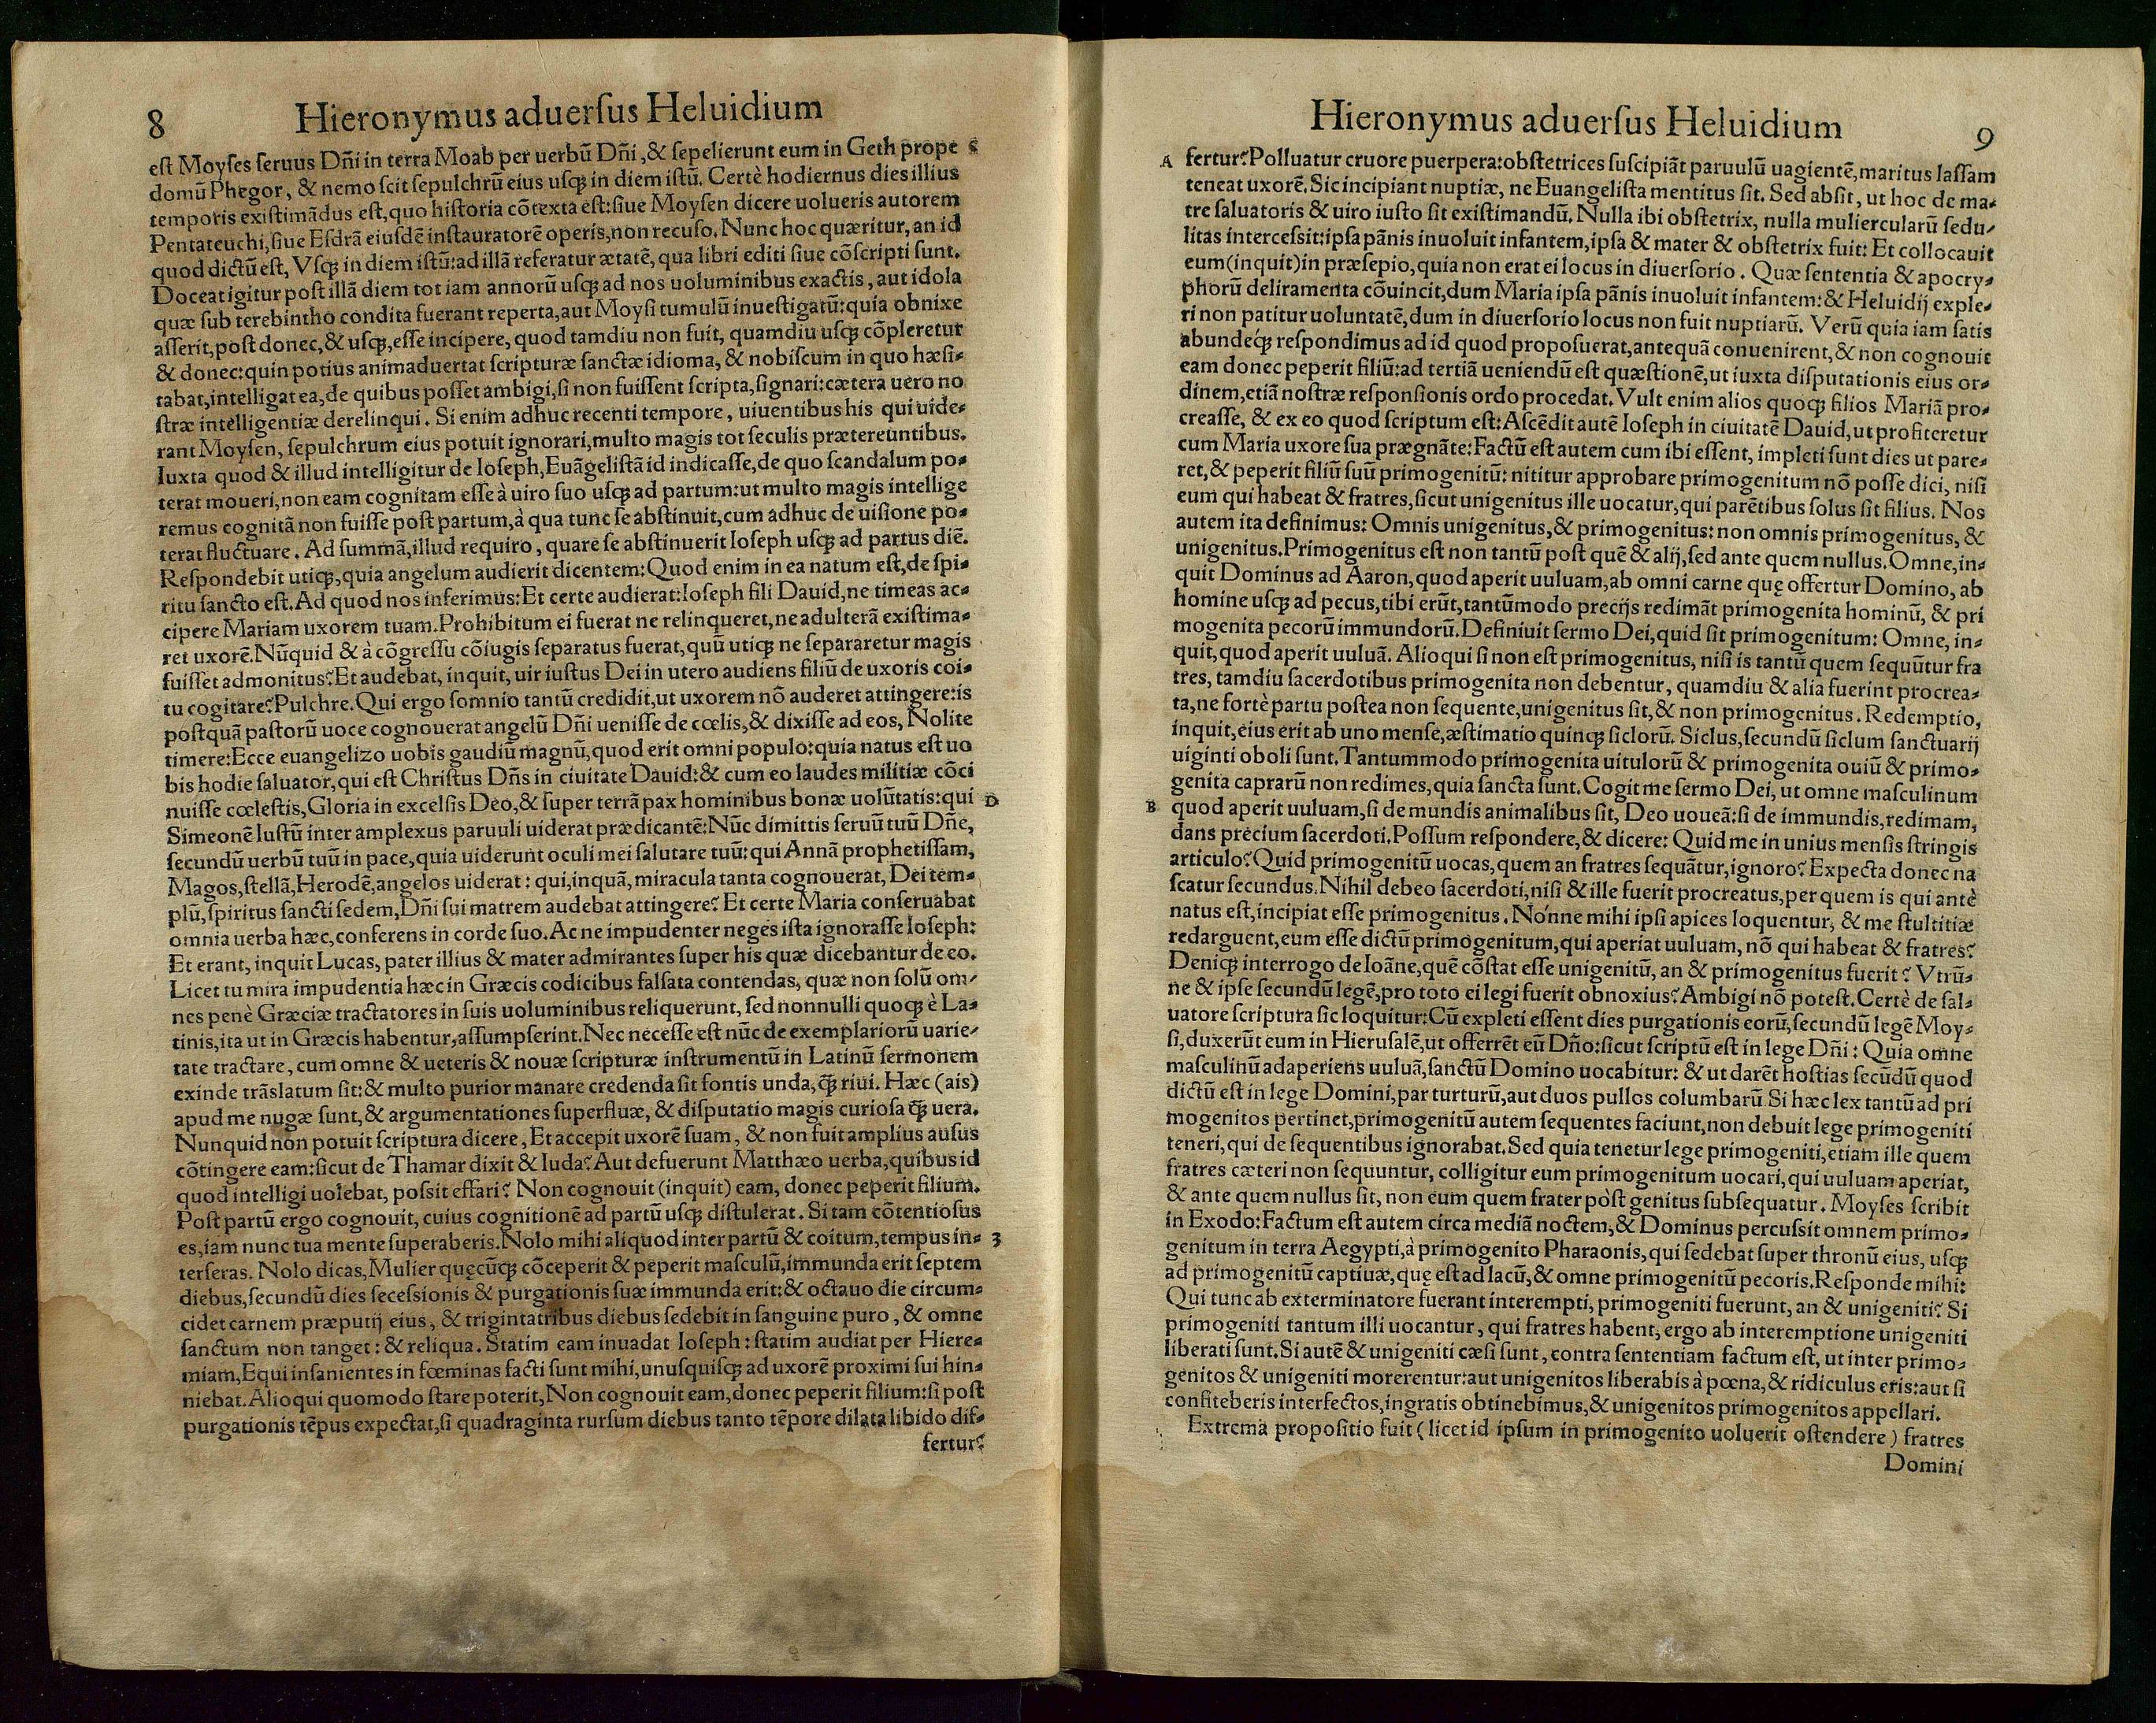 8
Hieronymus aduerſus Heluidium
eſt Moyſes ſeruus Dñi in terra Moab per uerbũ Dñi, & ſepelierunt eum in Geth prope
domũ Phegor, & nemo ſcit ſepulchrũ eius uſqꝫ in diem iſtũ. Certè hodiernus dies illius
temporis exiſtimãdus eſt, quo hiſtoria cõtexta eſt: ſiue Moyſen dicere uolueris autorem
Pentateuchi, ſiue Eſdrã eiuſdẽ inſtauratorẽ operis, non recuſo. Nunc hoc quæritur, an id
quod dictũ eſt, Vſqꝫ in diem iſtũ: ad illã referatur ætatẽ, qua libri editi ſiue cõſcripti ſunt.
Doceat igitur poſt illã diem tot iam annorũ uſqꝫ ad nos uoluminibus exactis, aut idola
quæ ſub terebintho condita fuerant reperta, aut Moyſi tumulũ inueſtigatũ: quia obnixe
aſſerit, poſt donec, & uſqꝫ, eſſe incipere, quod tamdiu non fuit, quamdiu uſqꝫ cõpleretur
& donec: quin potius animaduertat ſcripturæ ſanctæ idioma, & nobiſcum in quo hæſi-
tabat, intelligat ea, de quibus poſſet ambigi, ſi non fuiſſent ſcripta, ſignari: cætera uero no
ſtræ intelligentiæ derelinqui. Si enim adhuc recenti tempore, uiuentibus his qui uide-
rant Moyſen, ſepulchrum eius potuit ignorari, multo magis tot ſeculis prætereuntibus.
Iuxta quod & illud intelligitur de Ioſeph, Euãgeliſtã id indicaſſe, de quo ſcandalum po-
terat moueri, non eam cognitam eſſe à uiro ſuo uſqꝫ ad partum: ut multo magis intellige
remus cognitã non fuiſſe poſt partum, à qua tunc ſe abſtinuit, cum adhuc de uiſione po-
terat fluctuare. Ad ſummã, illud requiro, quare ſe abſtinuerit Ioſeph uſqꝫ ad partus diẽ.
Reſpondebit utiqꝫ, quia angelum audierit dicentem: Quod enim in ea natum eſt, de ſpi-
ritu ſancto eſt. Ad quod nos inferimus: Et certe audierat: Ioſeph fili Dauid, ne timeas ac-
cipere Mariam uxorem tuam. Prohibitum ei fuerat ne relinqueret, ne adulterã exiſtima-
ret uxorẽ. Nũquid & à cõgreſſu cõiugis ſeparatus fuerat, quũ utiqꝫ ne ſepararetur magis
fuiſſet admonitus? Et audebat, inquit, uir iuſtus Dei in utero audiens filiũ de uxoris coi-
tu cogitare? Pulchre. Qui ergo ſomnio tantũ credidit, ut uxorem nõ auderet attingere: is
poſtquã paſtorũ uoce cognouerat angelũ Dñi ueniſſe de cœlis, & dixiſſe ad eos, Nolite
timere: Ecce euangelizo uobis gaudiũ magnũ, quod erit omni populo: quia natus eſt uo
bis hodie ſaluator, qui eſt Chriſtus Dñs in ciuitate Dauid: & cum eo laudes militiæ cõci
nuiſſe cœleſtis, Gloria in excelſis Deo, & ſuper terrã pax hominibus bonæ uolũtatis: qui D
Simeonẽ Iuſtũ inter amplexus paruuli uiderat prædicantẽ: Nũc dimittis ſeruũ tuũ Dñe,
ſecundũ uerbũ tuũ in pace, quia uiderunt oculi mei ſalutare tuũ: qui Annã prophetiſſam,
Magos, ſtellã, Herodẽ, angelos uiderat: qui, inquã, miracula tanta cognouerat, Dei tem-
plũ, ſpiritus ſancti ſedem, Dñi ſui matrem audebat attingere? Et certe Maria conſeruabat
omnia uerba hæc, conferens in corde ſuo. Ac ne impudenter neges iſta ignoraſſe Ioſeph:
Et erant, inquit Lucas, pater illius & mater admirantes ſuper his quæ dicebantur de eo.
Licet tu mira impudentia hæc in Græcis codicibus falſata contendas, quæ non ſolũ om-
nes penè Græciæ tractatores in ſuis uoluminibus reliquerunt, ſed nonnulli quoqꝫ è La-
tinis, ita ut in Græcis habentur, aſſumpſerint. Nec neceſſe eſt nũc de exemplariorũ uarie-
tate tractare, cum omne & ueteris & nouæ ſcripturæ inſtrumentũ in Latinũ ſermonem
exinde trãslatum ſit: & multo purior manare credenda ſit fontis unda, q̃ꝫ riui. Hæc (ais)
apud me nugæ ſunt, & argumentationes ſuperfluæ, & diſputatio magis curioſa q̃ꝫ uera.
Nunquid non potuit ſcriptura dicere, Et accepit uxorẽ ſuam, & non fuit amplius auſus
cõtingere eam: ſicut de Thamar dixit & Iuda? Aut defuerunt Matthæo uerba, quibus id
quod intelligi uolebat, poſsit effari? Non cognouit (inquit) eam, donec peperit filium.
Poſt partũ ergo cognouit, cuius cognitionẽ ad partũ uſqꝫ diſtulerat. Si tam cõtentioſus
es, iam nunc tua mente ſuperaberis. Nolo mihi aliquod inter partũ & coitum, tempus in- 3
terſeras. Nolo dicas, Mulier quęcũqꝫ cõceperit & peperit maſculũ, immunda erit ſeptem
diebus, ſecundũ dies ſeceſsionis & purgationis ſuæ immunda erit: & octauo die circum-
cidet carnem præputij eius, & trigintatribus diebus ſedebit in ſanguine puro, & omne
ſanctum non tanget: & reliqua. Statim eam inuadat Ioſeph: ſtatim audiat per Hiere-
miam, Equi inſanientes in fœminas facti ſunt mihi, unuſquiſqꝫ ad uxorẽ proximi ſui hin-
niebat. Alioqui quomodo ſtare poterit, Non cognouit eam, donec peperit filium: ſi poſt
purgationis tẽpus expectat, ſi quadraginta rurſum diebus tanto tẽpore dilata libido dif-
fertur?
Hieronymus aduerſus Heluidium
9
A fertur? Polluatur cruore puerpera: obſtetrices ſuſcipiãt paruulũ uagientẽ, maritus laſſam
teneat uxorẽ. Sic incipiant nuptiæ, ne Euangeliſta mentitus ſit. Sed abſit, ut hoc de ma-
tre ſaluatoris & uiro iuſto ſit exiſtimandũ. Nulla ibi obſtetrix, nulla muliercularũ ſedu-
litas interceſsit: ipſa pãnis inuoluit infantem, ipſa & mater & obſtetrix fuit: Et collocauit
eum (inquit) in præſepio, quia non erat ei locus in diuerſorio. Quæ ſententia & apocry-
phorũ deliramenta cõuincit, dum Maria ipſa pãnis inuoluit infantem: & Heluidij exple-
ri non patitur uoluntatẽ, dum in diuerſorio locus non fuit nuptiarũ. Verũ quia iam ſatis
abundeqꝫ́ reſpondimus ad id quod propoſuerat, antequã conuenirent, & non cognouit
eam donec peperit filiũ: ad tertiã ueniendũ eſt quæſtionẽ, ut iuxta diſputationis eius or-
dinem, etiã noſtræ reſponſionis ordo procedat. Vult enim alios quoqꝫ filios Mariã pro-
creaſſe, & ex eo quod ſcriptum eſt: Aſcẽdit autẽ Ioſeph in ciuitatẽ Dauid, ut profiteretur
cum Maria uxore ſua prægnãte: Factũ eſt autem cum ibi eſſent, impleti ſunt dies ut pare-
ret, & peperit filiũ ſuũ primogenitũ: nititur approbare primogenitum nõ poſſe dici, niſi
eum qui habeat & fratres, ſicut unigenitus ille uocatur, qui parẽtibus ſolus ſit filius. Nos
autem ita definimus: Omnis unigenitus, & primogenitus: non omnis primogenitus, &
unigenitus. Primogenitus eſt non tantũ poſt quẽ & alij, ſed ante quem nullus. Omne, in-
quit Dominus ad Aaron, quod aperit uuluam, ab omni carne quę offertur Domino, ab
homine uſqꝫ ad pecus, tibi erũt, tantũmodo precijs redimãt primogenita hominũ, & pri
mogenita pecorũ immundorũ. Definiuit ſermo Dei, quid ſit primogenitum: Omne, in-
quit, quod aperit uuluã. Alioqui ſi non eſt primogenitus, niſi is tantũ quem ſequũtur fra
tres, tamdiu ſacerdotibus primogenita non debentur, quamdiu & alia fuerint procrea-
ta, ne fortè partu poſtea non ſequente, unigenitus ſit, & non primogenitus. Redemptio,
inquit, eius erit ab uno menſe, æſtimatio quinqꝫ ſiclorũ. Siclus, ſecundũ ſiclum ſanctuarij
uiginti oboli ſunt. Tantummodo primogenita uitulorũ & primogenita ouiũ & primo-
genita caprarũ non redimes, quia ſancta ſunt. Cogit me ſermo Dei, ut omne maſculinum
B quod aperit uuluam, ſi de mundis animalibus ſit, Deo uoueã: ſi de immundis, redimam,
dans precium ſacerdoti. Poſſum reſpondere, & dicere: Quid me in unius menſis ſtringis
articulo? Quid primogenitũ uocas, quem an fratres ſequãtur, ignoro? Expecta donec na
ſcatur ſecundus. Nihil debeo ſacerdoti, niſi & ille fuerit procreatus, per quem is qui antè
natus eſt, incipiat eſſe primogenitus. Nónne mihi ipſi apices loquentur, & me ſtultitiæ
redarguent, eum eſſe dictũ primogenitum, qui aperiat uuluam, nõ qui habeat & fratres?
Deniqꝫ interrogo de Ioãne, quẽ cõſtat eſſe unigenitũ, an & primogenitus fuerit? Vtrũ-
ne & ipſe ſecundũ legẽ, pro toto ei legi fuerit obnoxius? Ambigi nõ poteſt. Certè de ſal-
uatore ſcriptura ſic loquitur: Cũ expleti eſſent dies purgationis eorũ, ſecundũ legẽ Moy-
ſi, duxerũt eum in Hieruſalẽ, ut offerrẽt eũ Dño: ſicut ſcriptũ eſt in lege Dñi: Quia omne
maſculinũ adaperiens uuluã, ſanctũ Domino uocabitur: & ut darẽt hoſtias ſecũdũ quod
dictũ eſt in lege Domini, par turturũ, aut duos pullos columbarũ. Si hæc lex tantũ ad pri
mogenitos pertinet, primogenitũ autem ſequentes faciunt, non debuit lege primogeniti
teneri, qui de ſequentibus ignorabat. Sed quia tenetur lege primogeniti, etiam ille quem
fratres cæteri non ſequuntur, colligitur eum primogenitum uocari, qui uuluam aperiat,
& ante quem nullus ſit, non eum quem frater pòſt genitus ſubſequatur. Moyſes ſcribit
in Exodo: Factum eſt autem circa mediã noctem, & Dominus percuſsit omnem primo-
genitum in terra Aegypti, à primogenito Pharaonis, qui ſedebat ſuper thronũ eius, uſqꝫ
ad primogenitũ captiuæ, quę eſt ad lacũ, & omne primogenitũ pecoris. Reſponde mihi:
Qui tunc ab exterminatore fuerant interempti, primogeniti fuerunt, an & unigeniti? Si
primogeniti tantum illi uocantur, qui fratres habent, ergo ab interemptione unigeniti
liberati ſunt. Si autẽ & unigeniti cæſi ſunt, contra ſententiam factum eſt, ut inter primo-
genitos & unigeniti morerentur: aut unigenitos liberabis à pœna, & ridiculus eris: aut ſi
confiteberis interfectos, ingratis obtinebimus, & unigenitos primogenitos appellari.
Extrema propoſitio fuit (licet id ipſum in primogenito uoluerit oſtendere) fratres
Domini